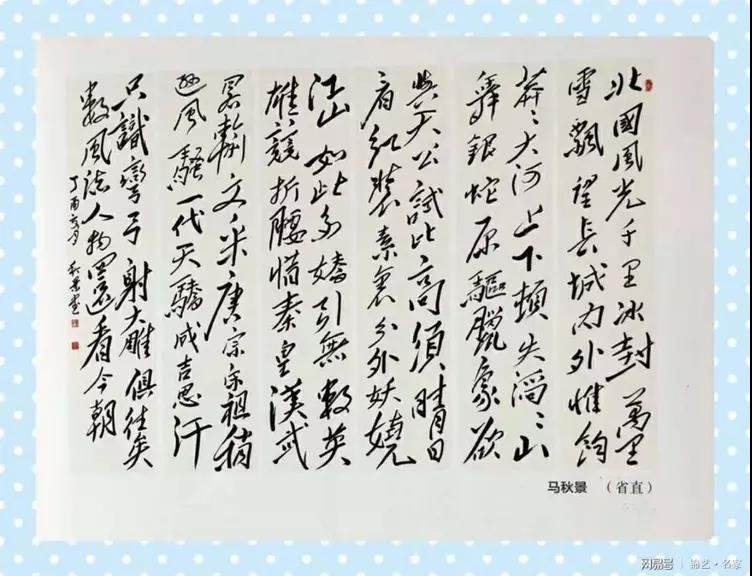 北國風光千里冰封萬里
雪飄望長城内外惟餘
莽〻大河上下頓失滔〻山
舞銀蛇原驅臘象欲
與天公試比高須晴日
看紅裝素裹分外妖嬈
江山如此多嬌引無數英
雄競折腰惜秦皇漢武
略輸文采唐宗宋祖稍
遜風騷一代天驕成吉思汗
只識彎弓射大雕俱往矣
數風流人物還看今朝
丁酉六月 秋景書
马秋景 （省直）
网易号 | 翰艺·名家